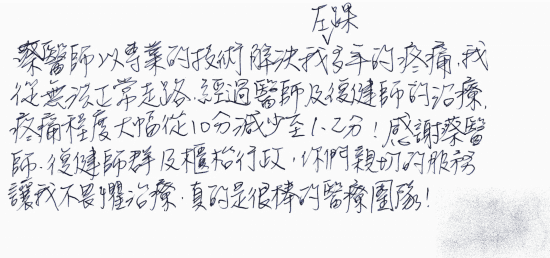 左踝
蔡醫師以專業的技術解決我多年的疼痛，我
從無法正常走路，經過醫師及復健師的治療，
疼痛程度大幅從10分減少至1、2分！感謝蔡醫
師、復健師群及櫃枱行政，你們親切的服務
讓我不畏懼治療，真的是很棒的醫療團隊！